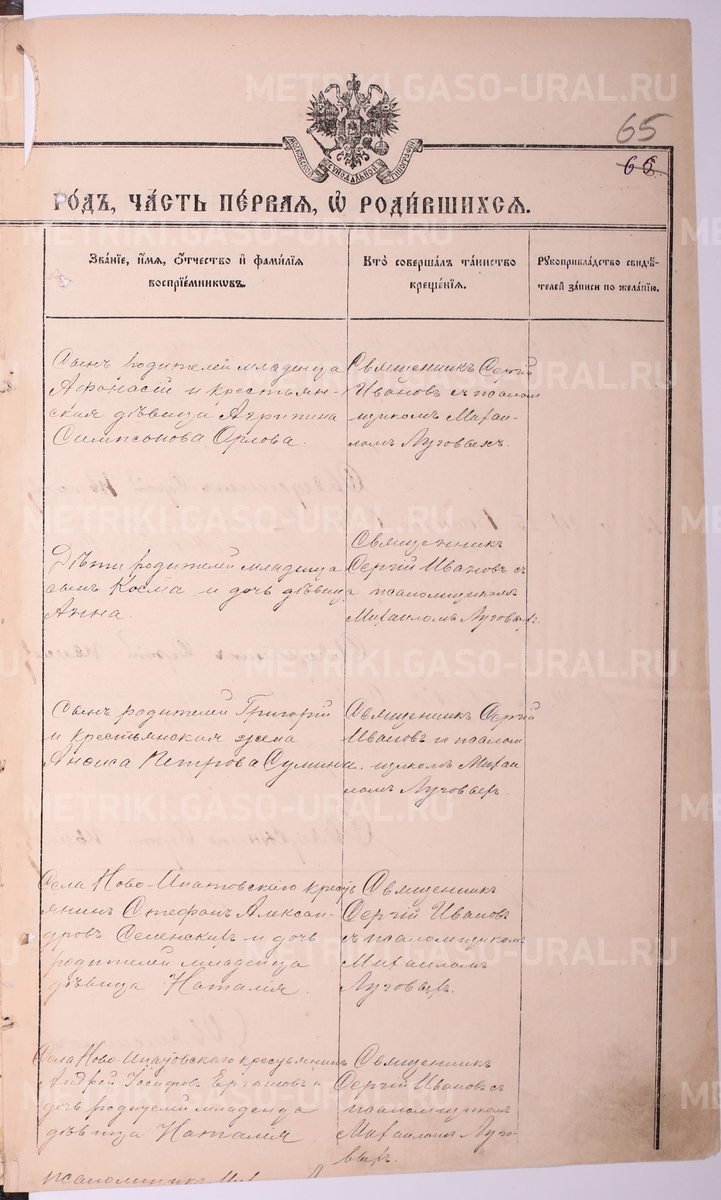 METRIKI.GASO-URAL.RU
65
66
МОСКОВСКОЙ СѴНОДАЛЬНОЙ ТИПОГРАФІИ
го́дъ, ча́сть пе́рвая, ѡ҆ роди́вшихсѧ.
Зва́нїе, и҆́мѧ, ѻ҆́тчество и҆ фами́лїѧ
воспрїе́мникѡвъ.
Кто̀ соверша́лъ та́инство
креще́нїѧ.
Рꙋкоприкла́дство свидѣ́-
телей за́писи по жела́нїю.
Сынъ родителей младенца
Афонасій и крестьян-
ская дѣвица Агрипина
Симпсонова Орлова.
Священникъ Сергій
Ивановъ съ псалом
щикомъ Михаи-
ломъ Луговыхъ.
Дѣти родителей младенца
сынъ Косма и дочь дѣвица
Анна.
Священникъ
Сергій Ивановъ съ
псаломщикомъ
Михаиломъ Луговыхъ.
Сынъ родителей Григорій
и крестьянская жена
Анфиса Петрова Сумина.
Священникъ Сергій
Ивановъ съ псалом
щикомъ Михаи
ломъ Луговыхъ.
Села Ново-Ипатовскаго кресть
янинъ Стефанъ Алексан-
дровъ и дочь
родителей младенца
дѣвица Наталія.
Священникъ
Сергій Ивановъ
съ псаломщикомъ
Михаиломъ
Луговыхъ.
Села Ново-Ипатовскаго крестьянинъ
Андрей Іосифовъ и
дочь родителей младенца
дѣвица Наталія.
Священникъ
Сергій Ивановъ съ
псаломщикомъ
Михаиломъ Луго-
выхъ.
псаломщикъ